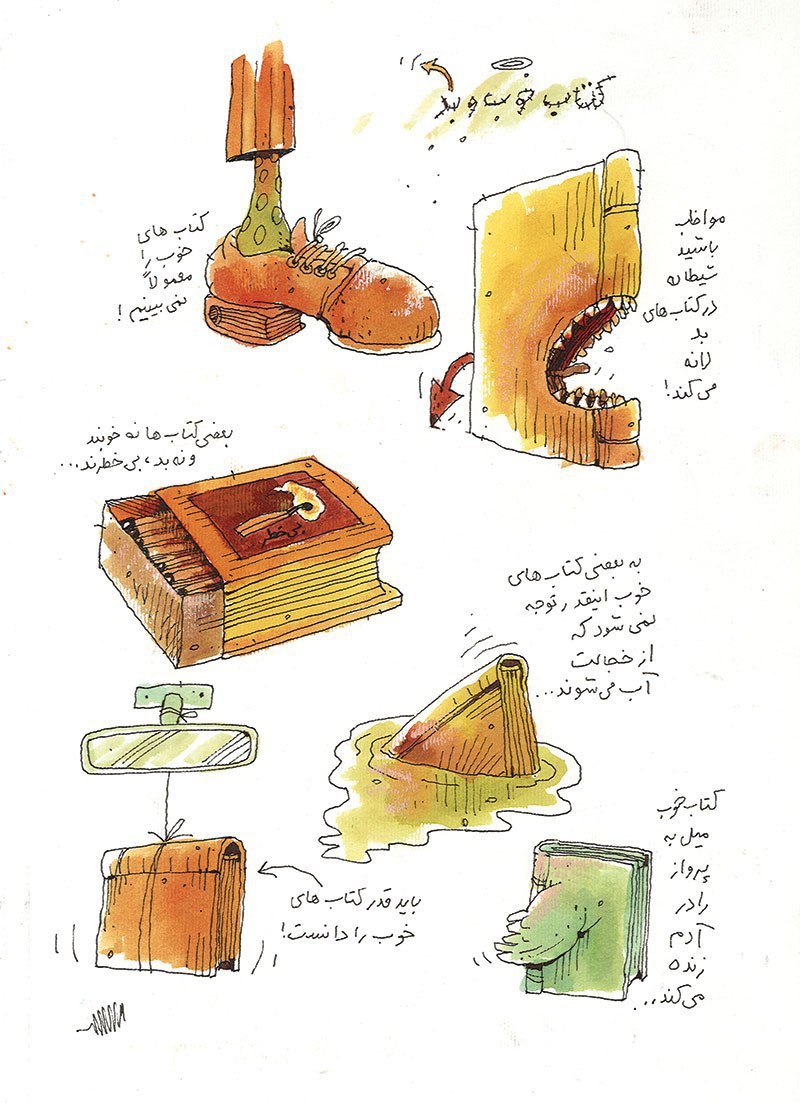 کتاب خوب و بد
مواظب
باشید
شیطان
در کتاب های
بد
لانه
می کند!
کتاب های
خوب را
معمولاً
نمی بینیم!
بعضی کتاب ها نه خوبند
و نه بد، بی خطرند...
بی خطر
به بعضی کتاب های
خوب اینقدر توجه
نمی شود که
از خجالت
آب می شوند...
باید قدر کتاب های
خوب را دانست!
کتاب خوب
میل به
پرواز
را در
آدم
زنده
می کند...